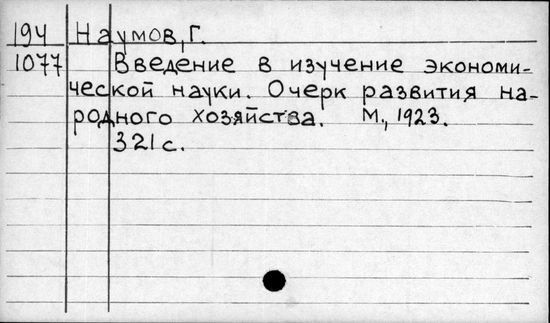 194 Наумов, Г.
1077 Введение в изучение экономи-
ческой науки. Очерк развития на-
родного хозяйства. М., 1923.
321 с.